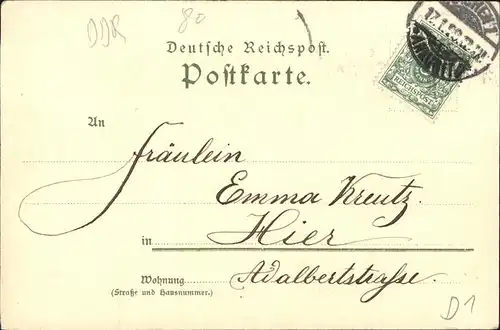 DDR 80
Deutsche Reichspost.
Postkarte.
REICHSPOST
An
Fräulein
Emma Kreutz.
in Hier
Wohnung Adalbertstrasse.
(Straße und Hausnummer.)
D1